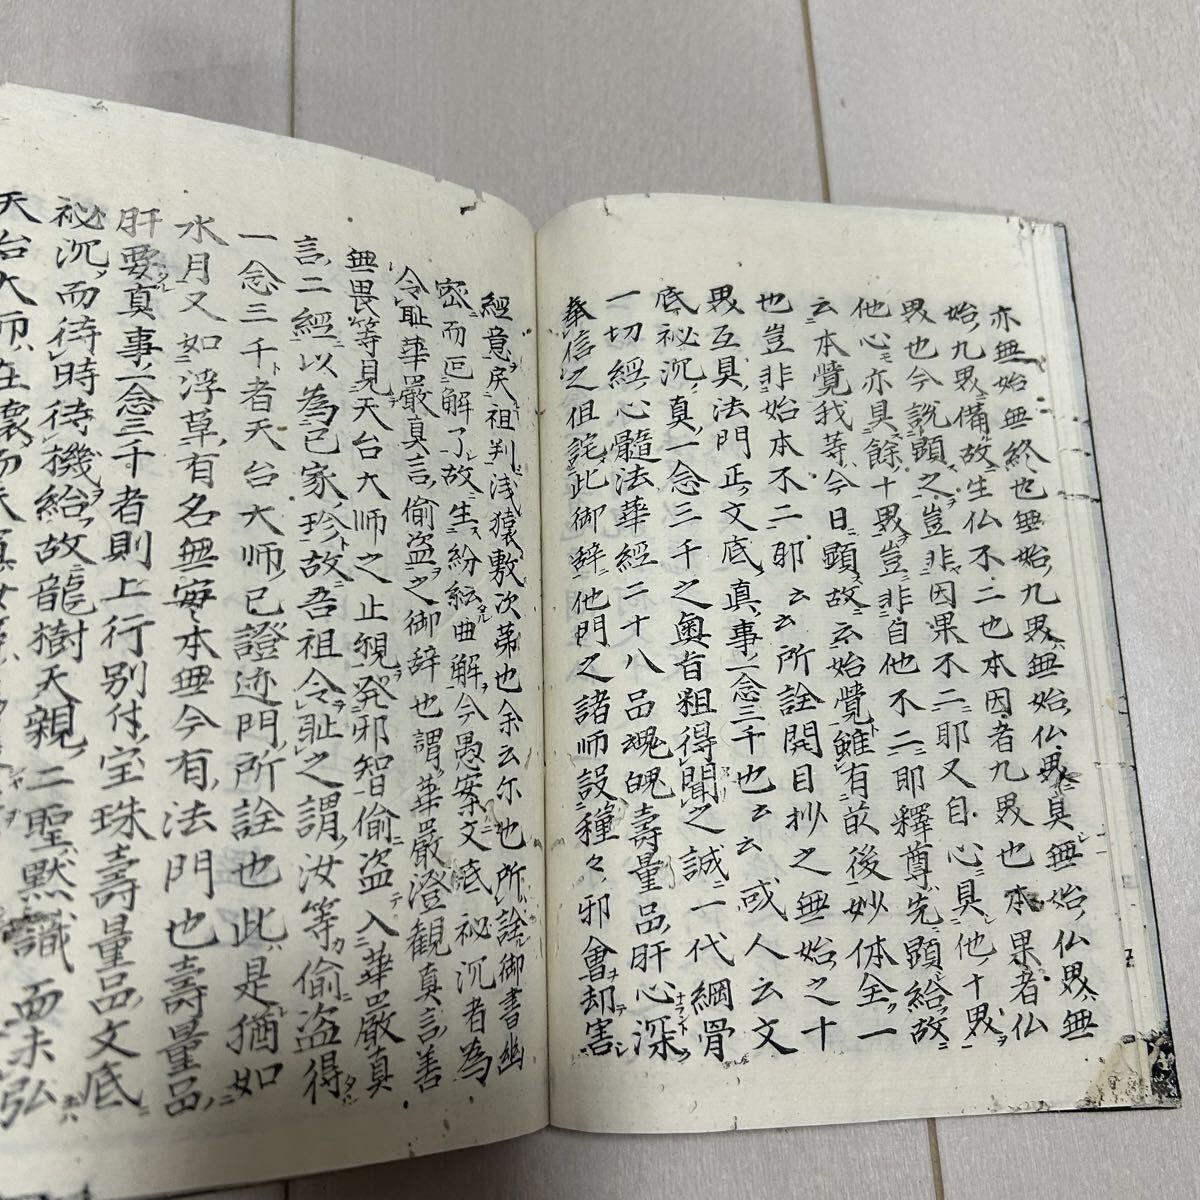 亦無始無終也無始九界無始仏界具無始仏界無
始九界備故生仏不二也本因者九界也本果者仏
界也今說顕之豈非因果不二耶又自心具他十界
他心モ亦具餘十界豈非自他不二耶釋尊先顕給故
云本覺我等今日顕故云始覺雖有前後妙体全一
也豈非始本不二耶云云所詮開目抄之無始之十
界互具法門正文底真事一念三千也云云或人云文
底祕沉真一念三千之奥旨粗得聞之誠一代綱骨
一切經心髓法華經二十八品魂魄壽量品肝心深
奉信之但詫此御辞他門之諸師設種々邪會却害
經意戾祖判浅猿敷次第也余云尔也所詮御書幽
密而叵解了故生紛紜曲解今愚案文底祕沉者為
令耻華嚴真言偷盗之御辞也謂華嚴澄観真言善
無畏等見天台大师之止観発邪智偷盗入華嚴真
言二經以為己家珍故吾祖令耻之謂汝等偷盗得
一念三千者天台大师已證迹門所詮也此是猶如
水月又如浮草有名無実本無今有法門也壽量品
肝要真事一念三千者則上行別付宝珠壽量品文底
祕沉而待時待機給故龍樹天親二聖黙識而未弘
天台大师在懐而